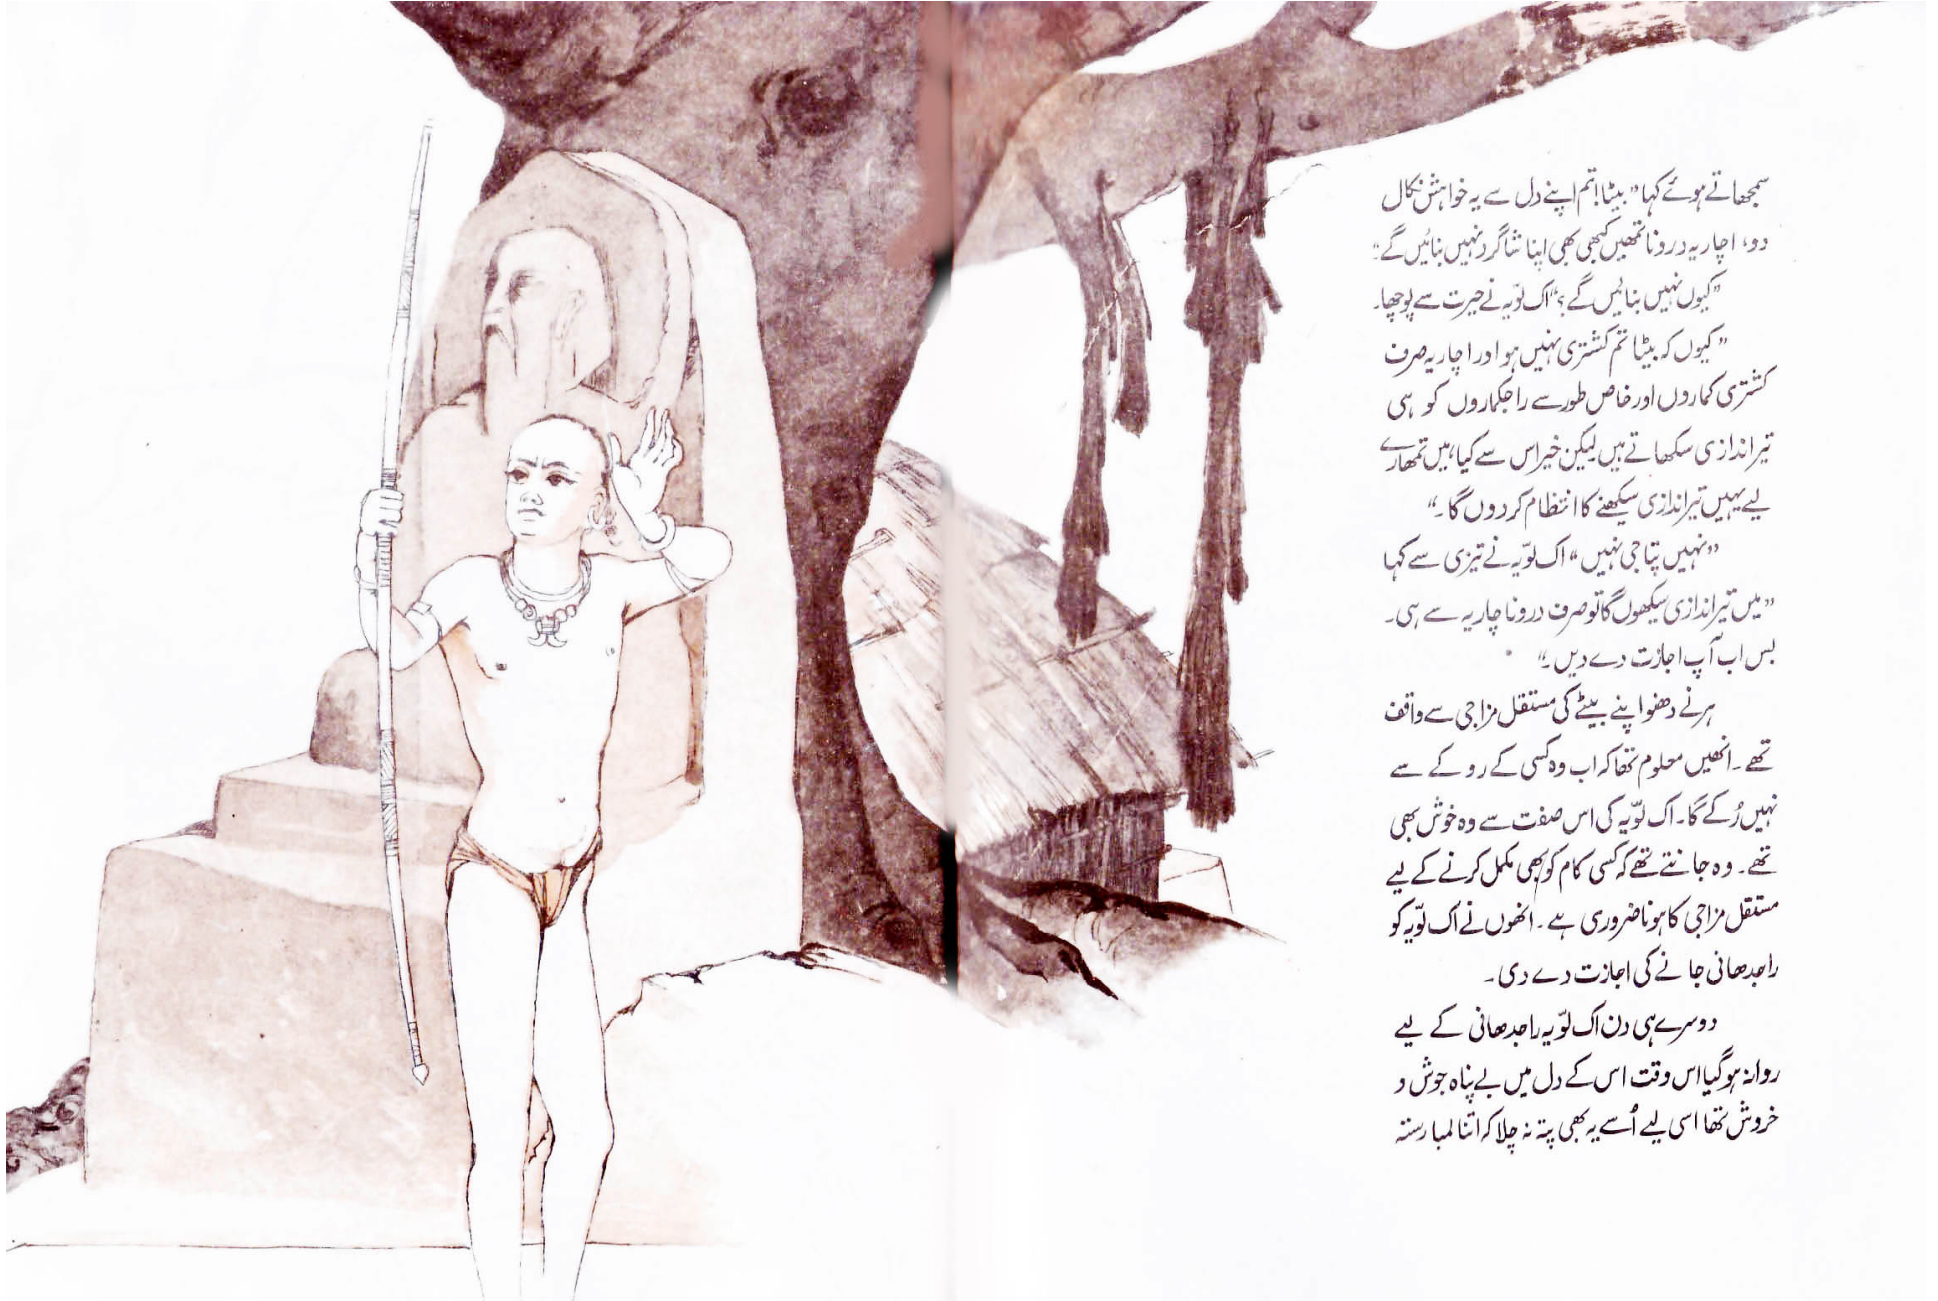 سمجھاتے ہوئے کہا ”بیٹا! تم اپنے دل سے یہ خواہش نکال
دو، اچاریہ درونا تمھیں کبھی بھی اپنا شاگرد نہیں بنائیں گے“
”کیوں نہیں بنائیں گے؟“ اک لوّیہ نے حیرت سے پوچھا۔
”کیوں کہ بیٹا تم کشتری نہیں ہو اور اچاریہ صرف
کشتری کماروں اور خاص طور سے راجکماروں کو ہی
تیراندازی سکھاتے ہیں لیکن خیر اس سے کیا، میں تمھارے
لیے یہیں تیراندازی سیکھنے کا انتظام کر دوں گا۔“
”نہیں پتا جی نہیں“ اک لوّیہ نے تیزی سے کہا
”میں تیراندازی سیکھوں گا تو صرف دروناچاریہ سے ہی۔
بس اب آپ اجازت دے دیں۔“
ہرنے دھنو اپنے بیٹے کی مستقل مزاجی سے واقف
تھے۔ انھیں معلوم تھا کہ اب وہ کسی کے روکے سے
نہیں رُکے گا۔ اک لوّیہ کی اس صفت سے وہ خوش بھی
تھے۔ وہ جانتے تھے کہ کسی کام کو بھی مکمل کرنے کے لیے
مستقل مزاجی کا ہونا ضروری ہے۔ انھوں نے اک لوّیہ کو
راجدھانی جانے کی اجازت دے دی۔
دوسرے ہی دن اک لوّیہ راجدھانی کے لیے
روانہ ہو گیا اس وقت اس کے دل میں بے پناہ جوش و
خروش تھا اسی لیے اُسے یہ بھی پتہ نہ چلا کہ اتنا لمبا رستہ